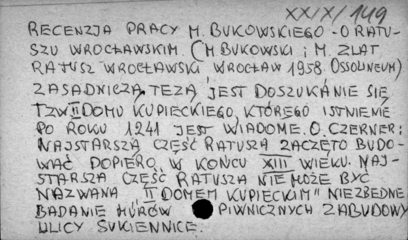 XXIX/149
RECENZJA PRACY M. BUKOWSKIEGO - O RATU-
SZU WROCŁAWSKIM. (M BUKOWSKI i M. ZLAT,
RATUSZ WROCŁAWSKI WROCŁAW 1958. OSSOLINEUM)
ZASADNICZĄ TEZĄ JEST DOSZUKANIE SIĘ
TZW II DOMU KUPIECKIEGO, KTÓREGO ISTNIENIE
PO ROKU 1241 JEST WIADOME. O. CZERNER:
NAJSTARSZĄ CZĘŚĆ RATUSZA ZACZĘTO BUDO-
WAĆ DOPIERO W KOŃCU XIII WIEKU. NAJ-
STARSZA CZĘŚĆ RATUSZA NIE MOŻE BYĆ
NAZWANA "II DOMEM KUPIECKIM" NIEZBĘDNE
BADANIE MURÓW PIWNICZNYCH ZABUDOWY
ULICY SUKIENNICE.